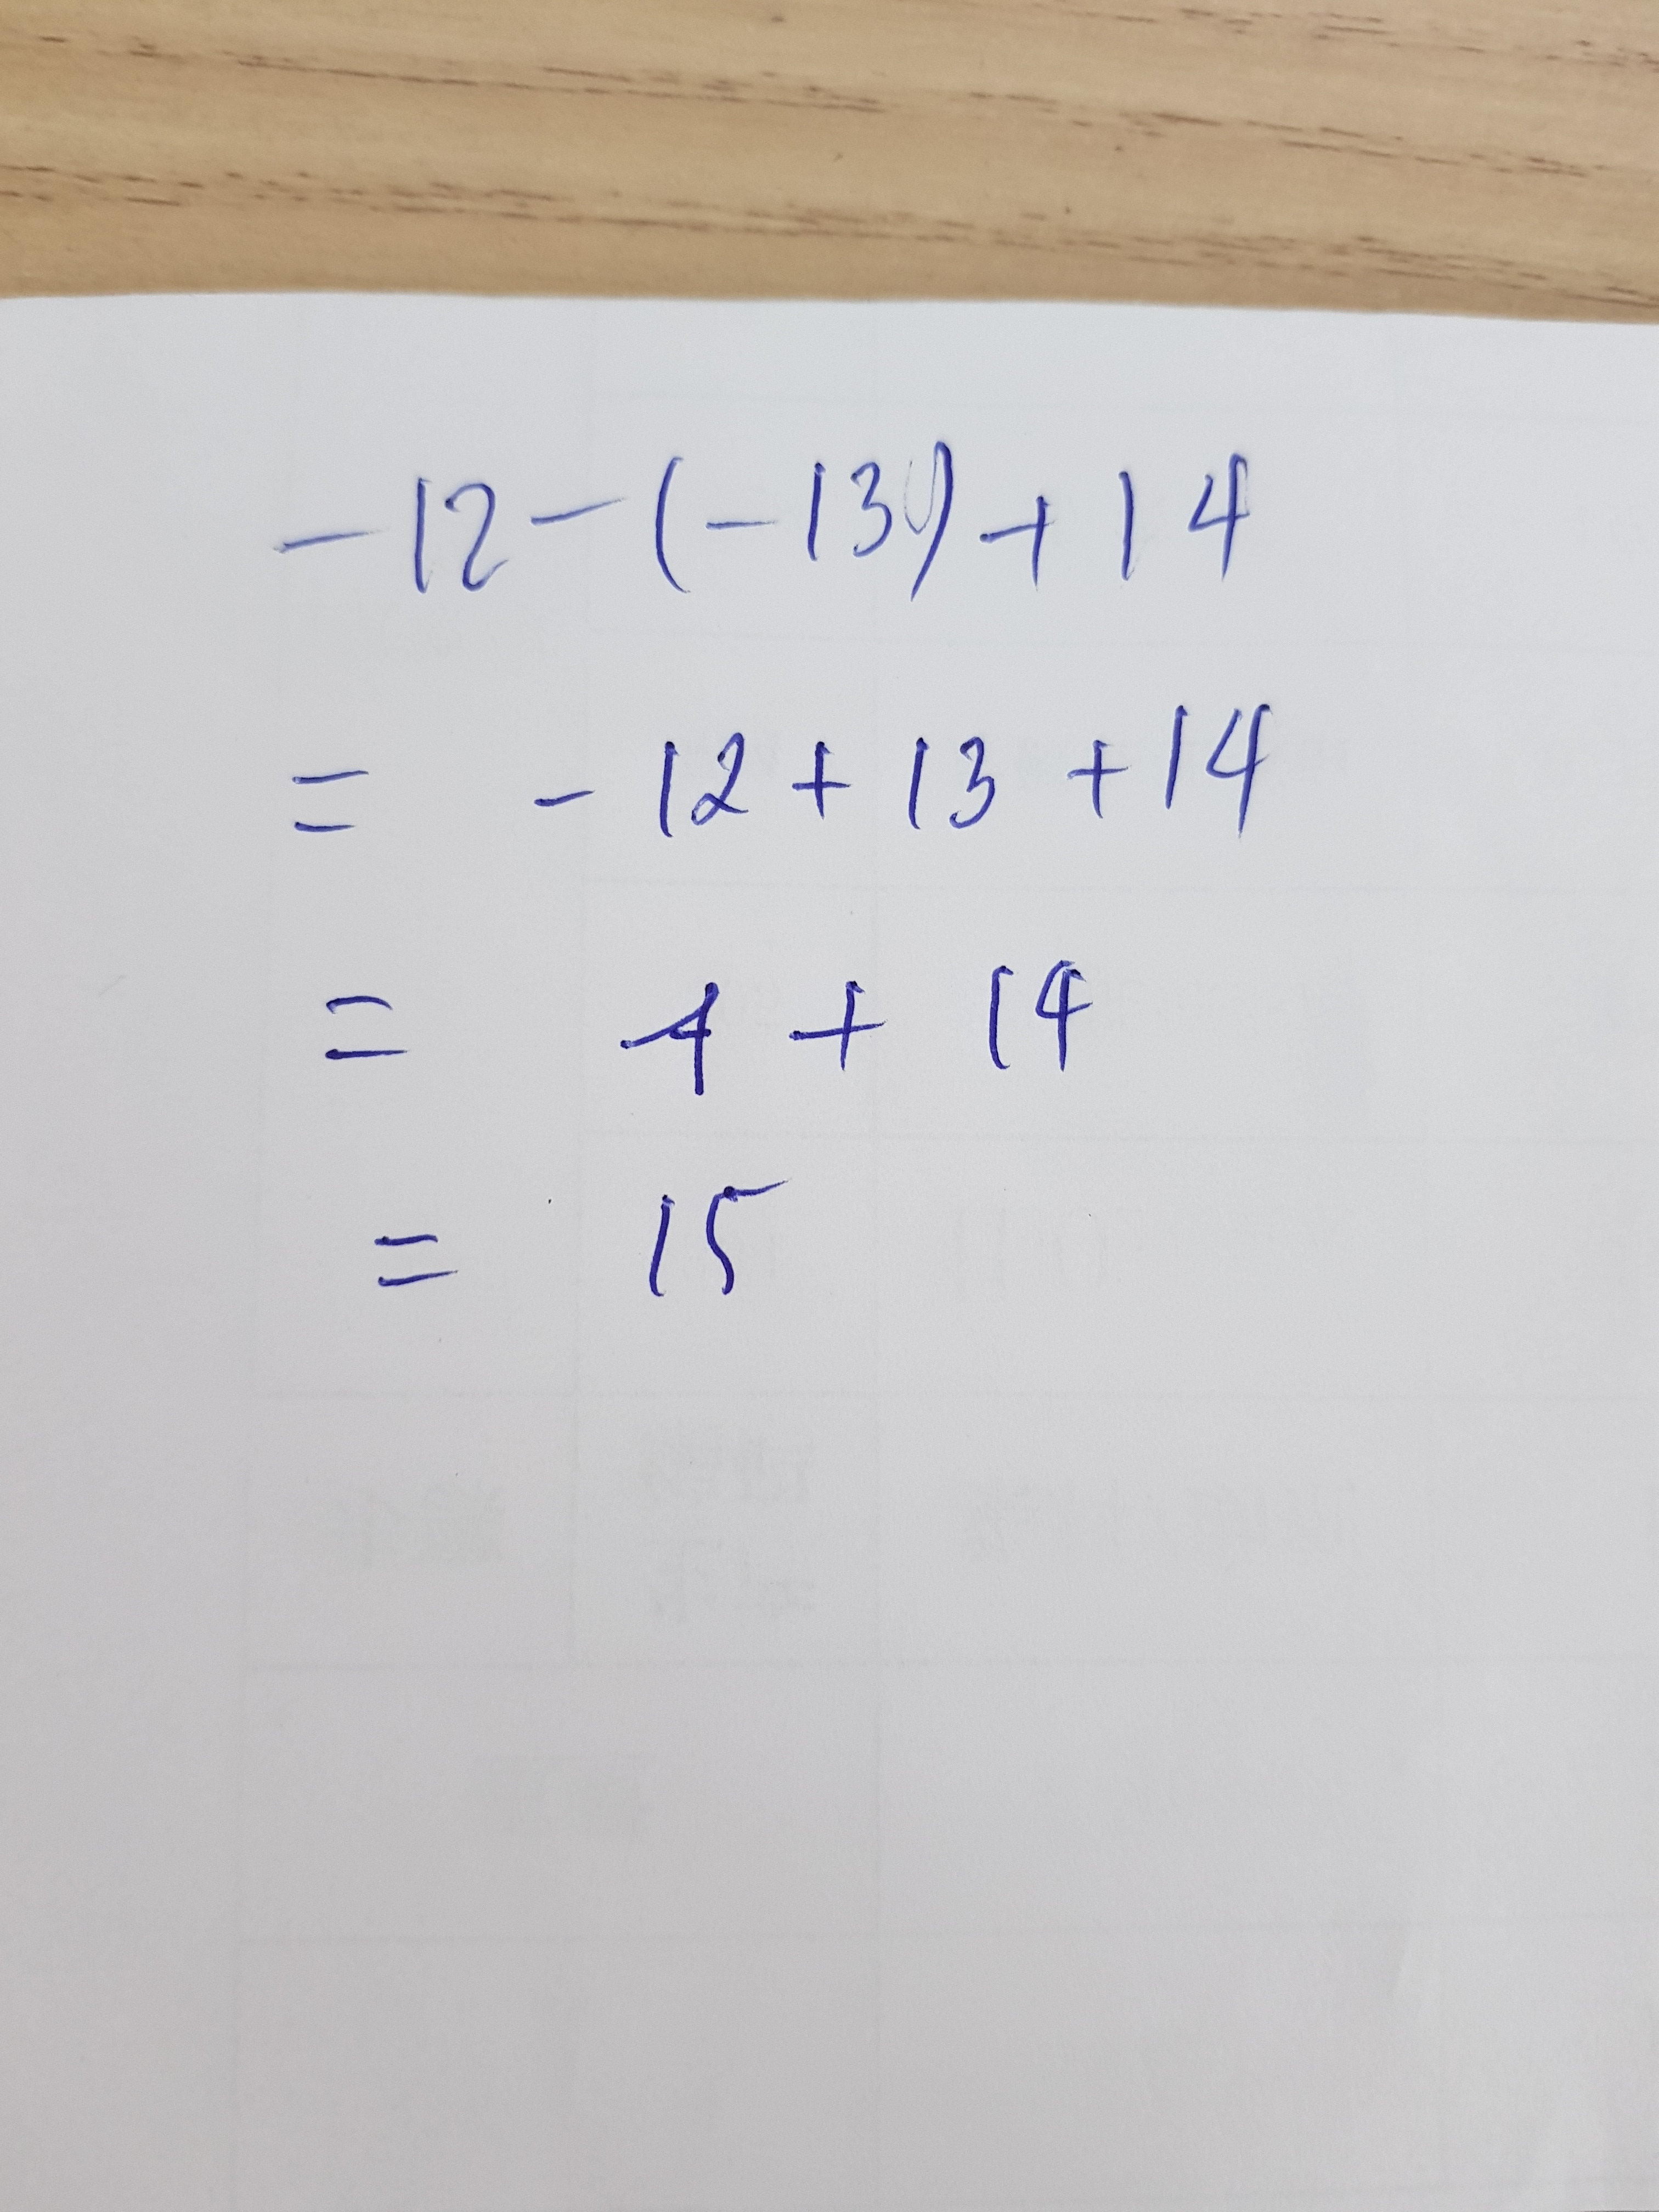 -12-(-13)+14
= -12+13+14
= 4 + 14
= 15